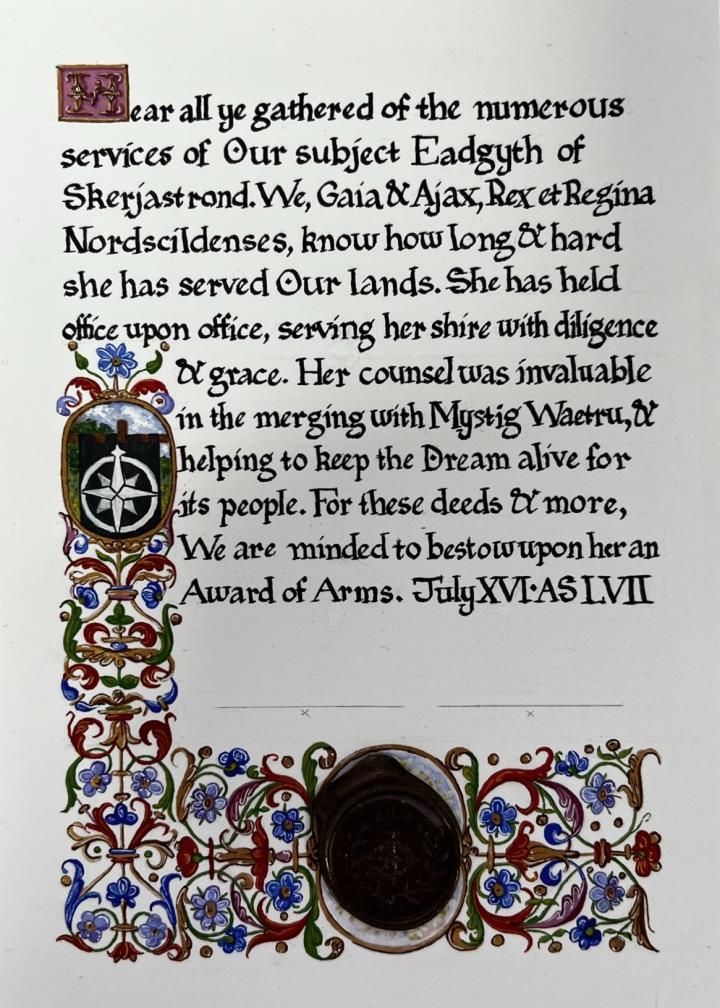 Hear all ye gathered of the numerous
services of Our subject Eadgyth of
Skerjastrond. We, Gaia & Ajax, Rex et Regina
Nordscildenses, know how long & hard
she has served Our lands. She has held
office upon office, serving her shire with diligence
& grace. Her counsel was invaluable
in the merging with Mystig Waetru, &
helping to keep the Dream alive for
its people. For these deeds & more,
We are minded to bestow upon her an
Award of Arms. July XVI · AS LVII
x x